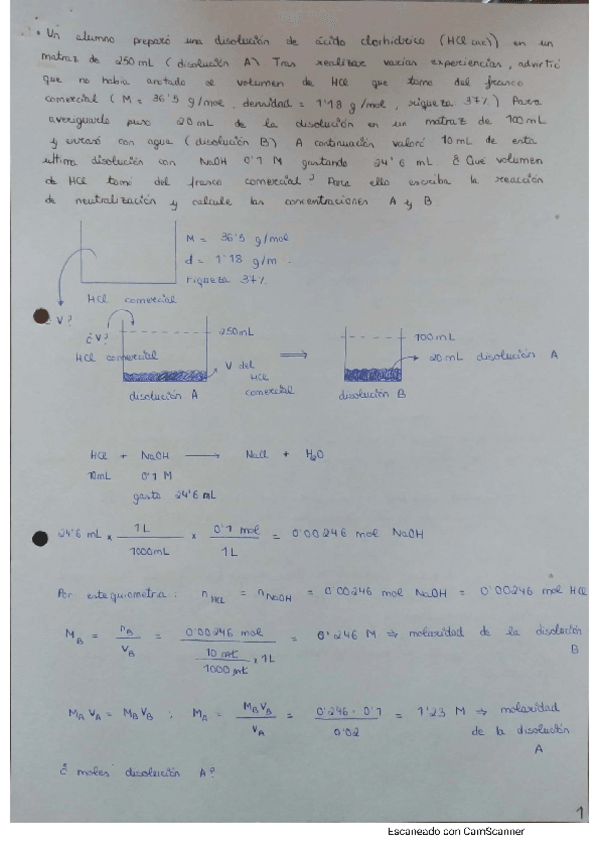 • Un alumno preparó una disolución de ácido clorhídrico (HCl (ac)) en un
matraz de 250 mL (disolución A) Tras realizar varias experiencias, advirtió
que no había anotado el volumen de HCl que tomo del frasco
comercial (M = 36'5 g/mol, densidad = 1'18 g/mol, riqueza 37%) Para
averiguarlo puso 20 mL de la disolución en un matraz de 100 mL
y enrasó con agua (disolución B) A continuación valoró 10 mL de esta
ultima disolución con NaOH 0'1 M gastando 24'6 mL ¿ Qué volumen
de HCl tomó del frasco comercial? Para ello escriba la reacción
de neutralización y calcule las concentraciones A y B
M = 36'5 g/mol
d = 1'18 g/m
riqueza 37%
HCl comercial
¿V?
¿V?
HCl comercial
250 mL
V del
HCl
comercial
disolución A
100 mL
20 mL disolución A
disolución B
HCl + NaOH → NaCl + H₂O
10mL 0'1 M
gasto 24'6 mL
24'6 mL × 1L / 1000mL × 0'1 mol / 1L = 0'00246 mol NaOH
Por estequiometria: n HCl = n NaOH = 0'00246 mol NaOH = 0'00246 mol HCl
M_B = n_B / V_B = 0'00246 mol / (10 mL / 1000 mL × 1L) = 0'246 M ⇒ molaridad de la disolución
B
M_A V_A = M_B V_B ; M_A = M_B V_B / V_A = 0'246 · 0'1 / 0'02 = 1'23 M ⇒ molaridad
de la disolución
A
¿ moles disolución A?
1
Escaneado con CamScanner